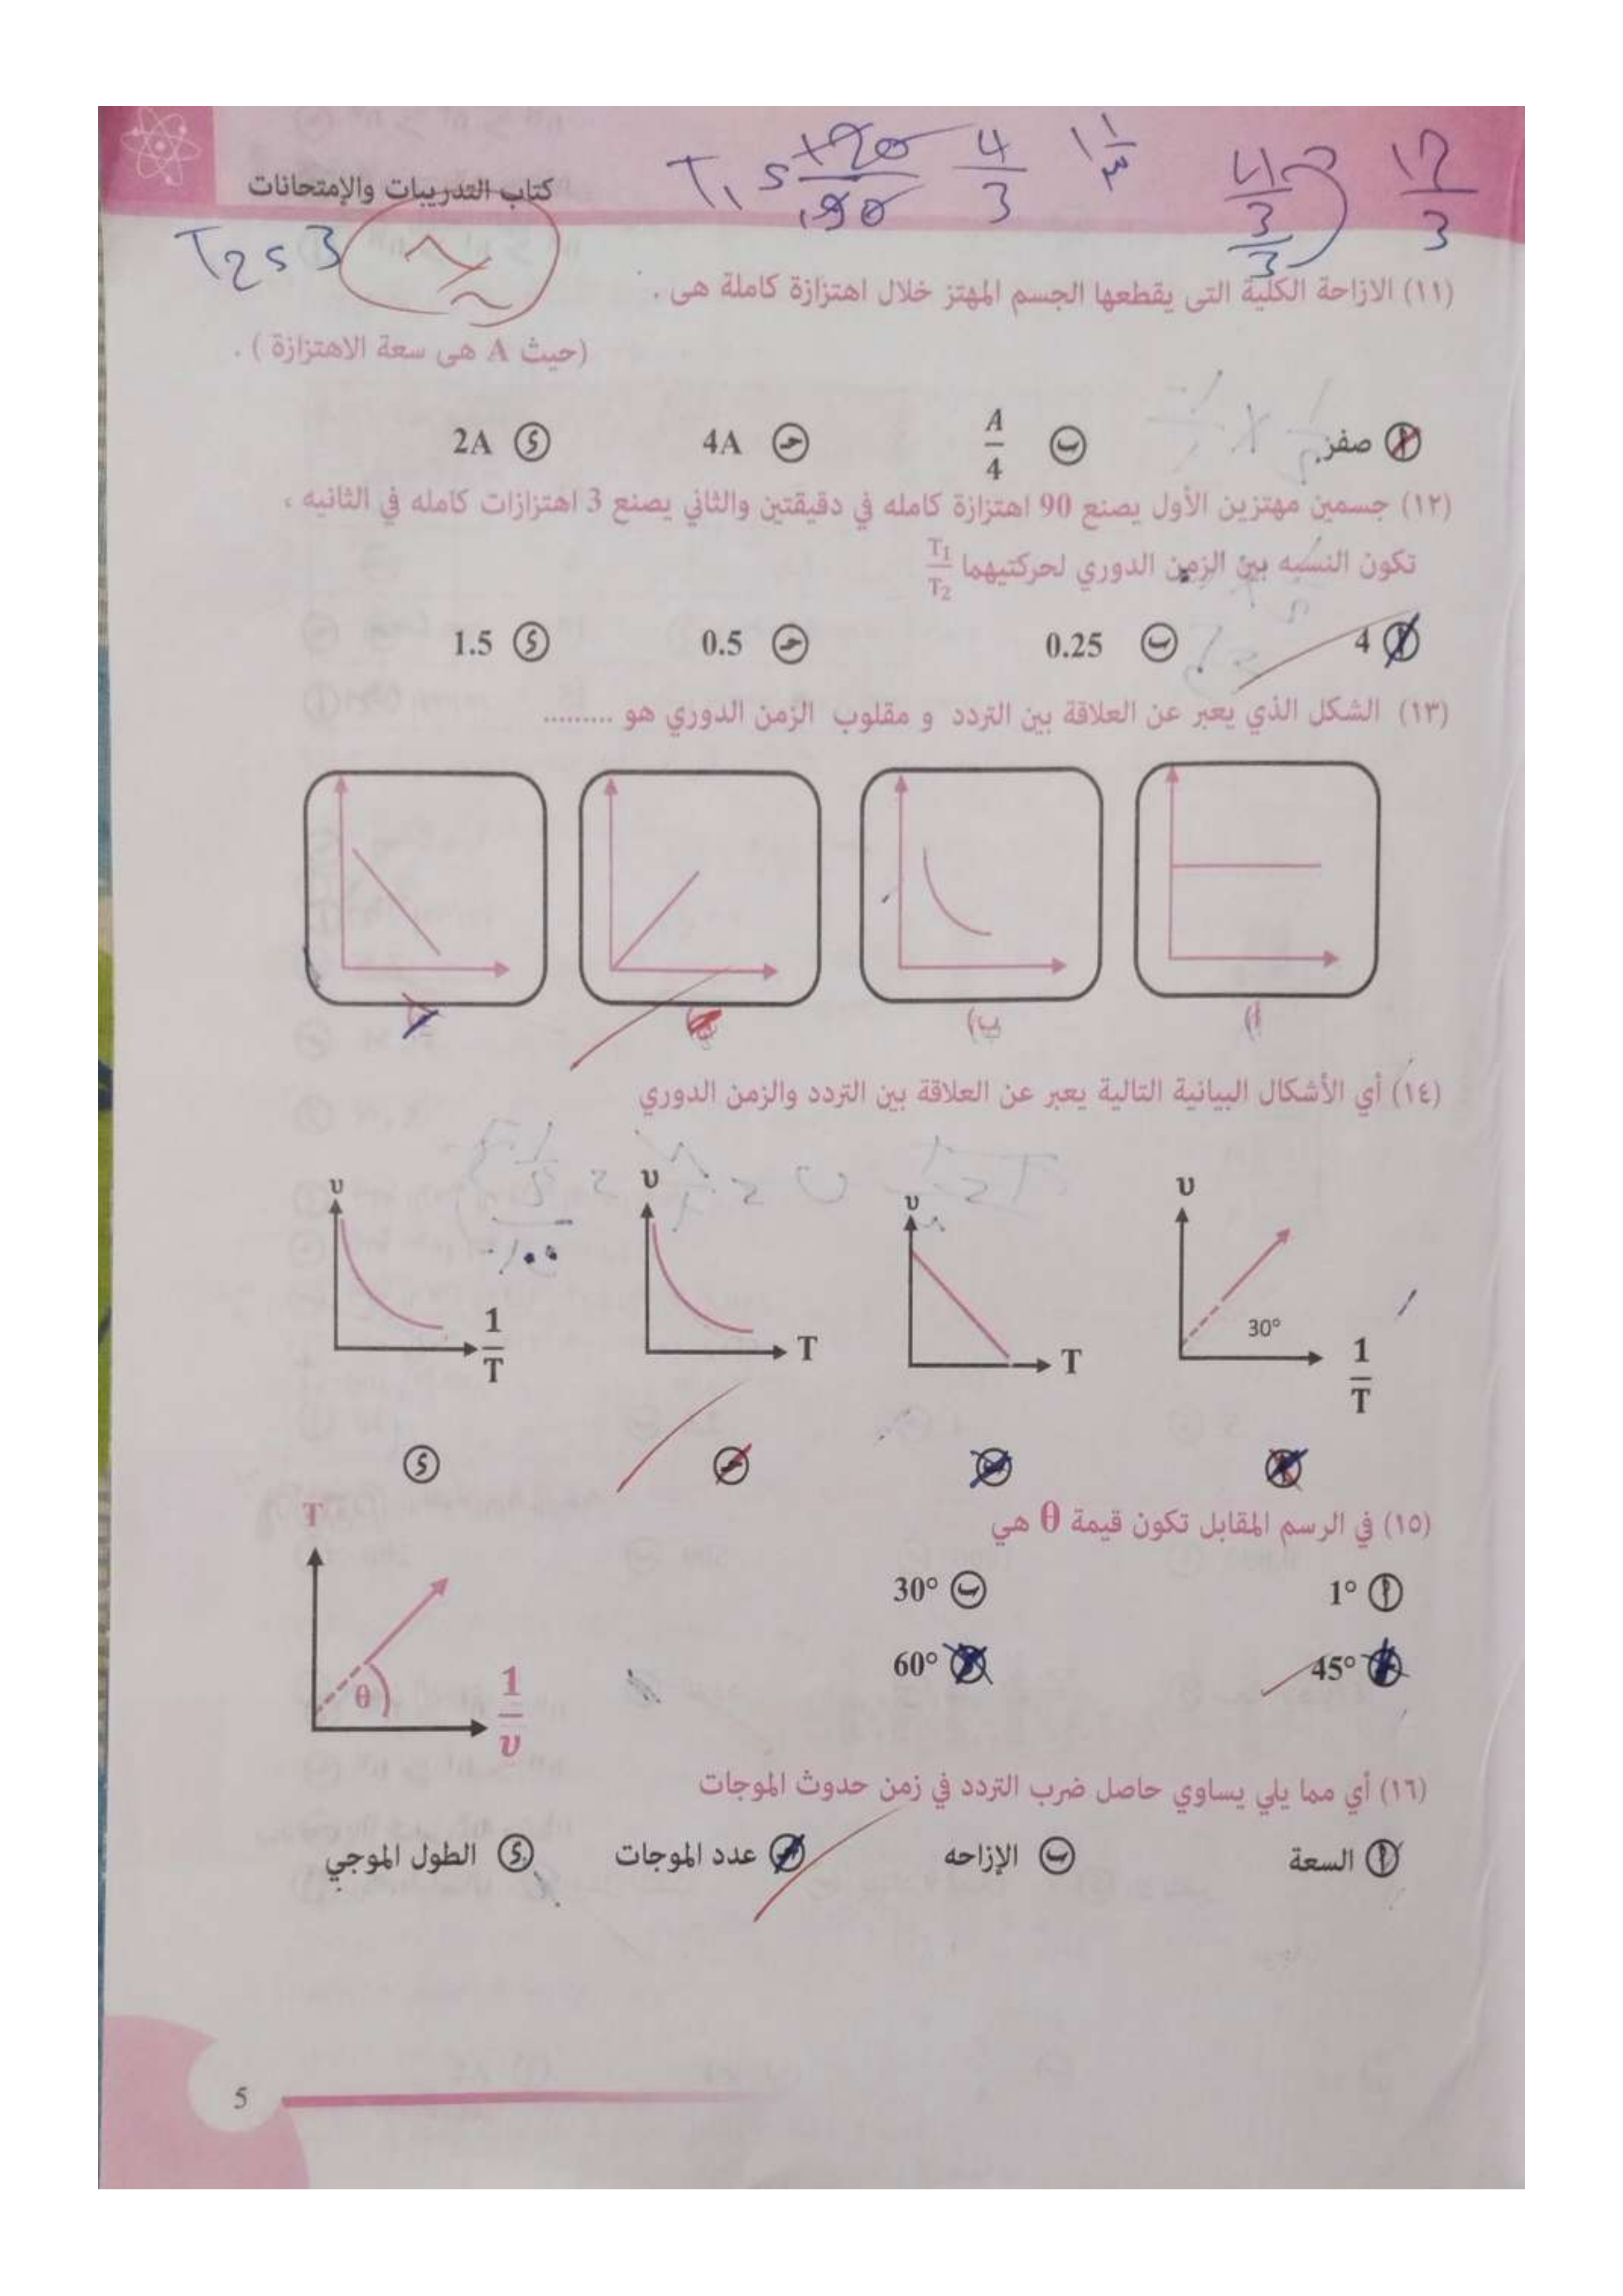 كتاب التدريبات والإمتحانات
T₁ = 120/90 4/3 1 1/3 4/3/3 12/3
T₂ = 3
(١١) الازاحة الكلية التى يقطعها الجسم المهتز خلال اهتزازة كاملة هى .
(حيث A هى سعة الاهتزازة ) .
أ صفر. ب A/4 حـ 4A د 2A
(١٢) جسمين مهتزين الأول يصنع 90 اهتزازة كامله في دقيقتين والثاني يصنع 3 اهتزازات كامله في الثانيه ،
تكون النسبه بين الزمن الدوري لحركتيهما T₁/T₂
أ 4 ب 0.25 حـ 0.5 د 1.5
(١٣) الشكل الذي يعبر عن العلاقة بين التردد و مقلوب الزمن الدوري هو .........
أ) ب)
(١٤) أي الأشكال البيانية التالية يعبر عن العلاقة بين التردد والزمن الدوري
υ 30° 1/T
υ T
υ T
υ 1/T
أ ب حـ د
(١٥) في الرسم المقابل تكون قيمة θ هي
أ 1° ب 30°
حـ 45° د 60°
T θ 1/υ
(١٦) أي مما يلي يساوي حاصل ضرب التردد في زمن حدوث الموجات
أ السعة ب الإزاحه حـ عدد الموجات د الطول الموجي
5